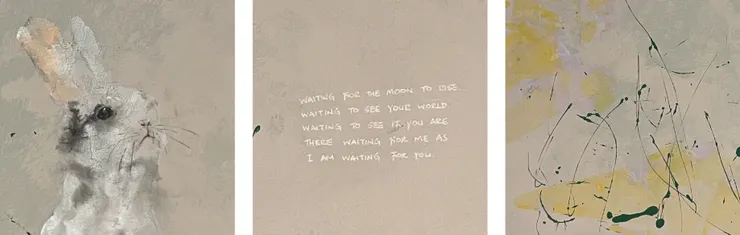 WAITING FOR THE MOON TO RISE.
WAITING TO SEE YOUR WORLD.
WAITING TO SEE IF YOU ARE
THERE WAITING FOR ME AS
I AM WAITING FOR YOU.